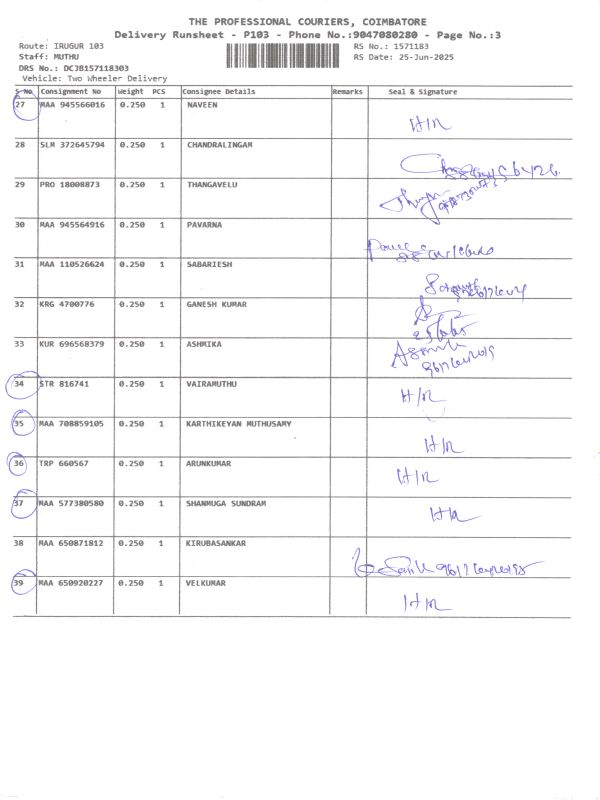 THE PROFESSIONAL COURIERS, COIMBATORE
Delivery Runsheet - P103 - Phone No.:9047080280 - Page No.:3
Route: IRUGUR 103 RS No.: 1571183
Staff: MUTHU RS Date: 25-Jun-2025
DRS No.: DCJB157118303
Vehicle: Two Wheeler Delivery
S No Consignment No Weight PCS Consignee Details Remarks Seal & Signature
27 MAA 945566016 0.250 1 NAVEEN
H/R
28 SLM 372645794 0.250 1 CHANDRALINGAM
29 PRO 18008873 0.250 1 THANGAVELU
30 MAA 945564916 0.250 1 PAVARNA
31 MAA 110526624 0.250 1 SABARIESH
32 KRG 4700776 0.250 1 GANESH KUMAR
33 KUR 696568379 0.250 1 ASHMIKA
34 STR 816741 0.250 1 VAIRAMUTHU
H/R
35 MAA 708859105 0.250 1 KARTHIKEYAN MUTHUSAMY
H/R
36 TRP 660567 0.250 1 ARUNKUMAR
H/R
37 MAA 577380580 0.250 1 SHANMUGA SUNDRAM
H/R
38 MAA 650871812 0.250 1 KIRUBASANKAR
39 MAA 650920227 0.250 1 VELKUMAR
H/R